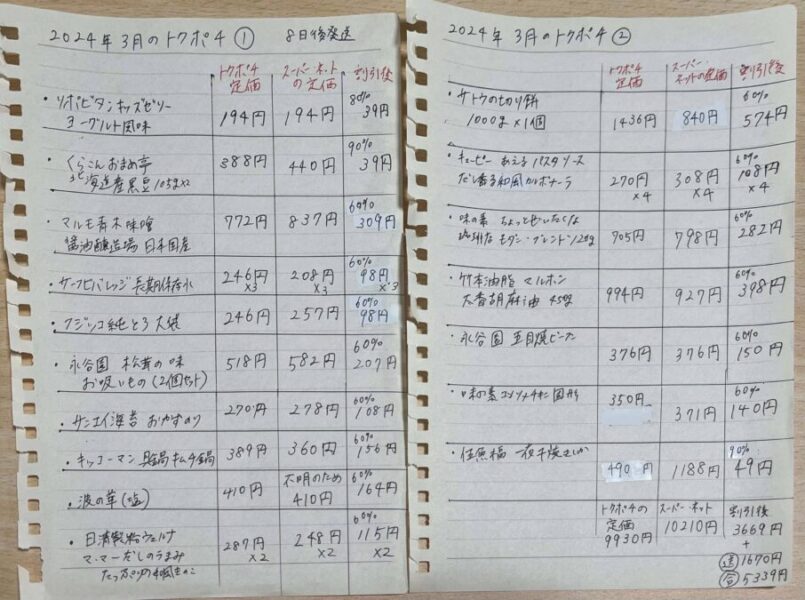 2024年 3月のトクポチ ① 8日後発送
トクポチ定価 スーパー・ネットの定価 割引後
・リポビタンキッズゼリー ヨーグルト風味 194円 194円 80% 39円
・くらこんおまめ亭 北海道産黒豆 105g×2 388円 440円 90% 39円
・マルモ青木味噌 醤油醸造場 日本国産 772円 837円 60% 309円
・サーフビバレッジ 長期保存水 246円×3 208円×3 60% 98円×3
・フジッコ純とろ 大袋 246円 257円 60% 98円
・永谷園 松茸の味 お吸いもの(2個セット) 518円 582円 60% 207円
・サンエイ海苔 おかずのり 270円 278円 60% 108円
・キッコーマン 鍋キムチ鍋 389円 360円 60% 156円
・波の華(塩) 410円 不明のため 410円 60% 164円
・日清製粉ウェルナ マ・マーだしのうまみ 287円×2 248円×2 60% 115円×2
2024年 3月のトクポチ ②
トクポチ定価 スーパー・ネットの定価 割引後
・サトウの切り餅 1000g×1個 1436円 840円 60% 574円
・キューピー あえるパスタソース だし香る和風カルボナーラ 270円×4 308円×4 60% 108円×4
・味の素 ちょっとぜいたくな珈琲店 モダン・ブレンド 120g 705円 798円 60% 282円
・竹本油脂 マルホン 太香胡麻油 450g 994円 927円 60% 398円
・永谷園 五目焼ビーフン 376円 376円 60% 150円
・味の素コンソメチキン 固形 350円 371円 60% 140円
・佳魚福 一夜干焼きいか 490円 1188円 90% 49円
トクポチの定価 9930円 スーパー・ネット 10210円 割引後 3669円
+
送 1670円
合 5339円